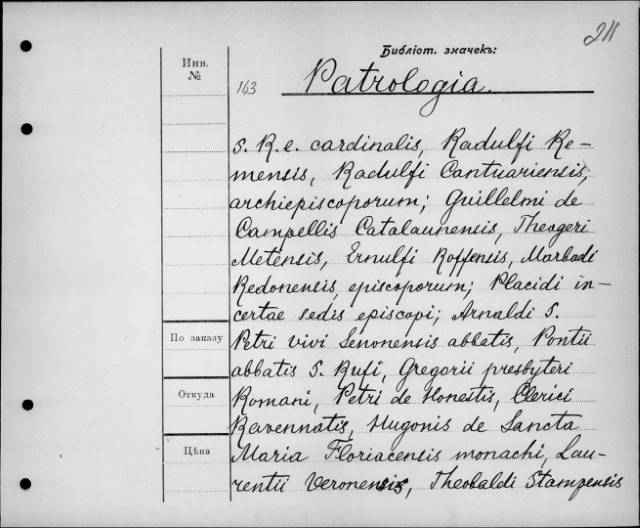 211
Библіот. значекъ:
Инв. №
143
Patrologia.
S. R. e. cardinalis, Radulfi Re-
mensis, Radulfi Cantuariensis,
archiepiscoporum; Guillelmi de
Campellis Catalaunensis, Theogeri
Metensis, Ernulfi Roffensis, Marbodi
Redonensis, episcoporum; Placidi in-
certae sedis episcopi; Arnaldi S.
По заказу
Petri vivi Senonensis abbatis, Pontii
abbatis S. Rufi, Gregorii presbyteri
Откуда
Romani, Petri de Honestis, Clerici
Ravennatis, Hugonis de Sancta
Цѣна
Maria Floriacensis monachi, Lau-
rentii Veronensis, Theobaldi Stampensis